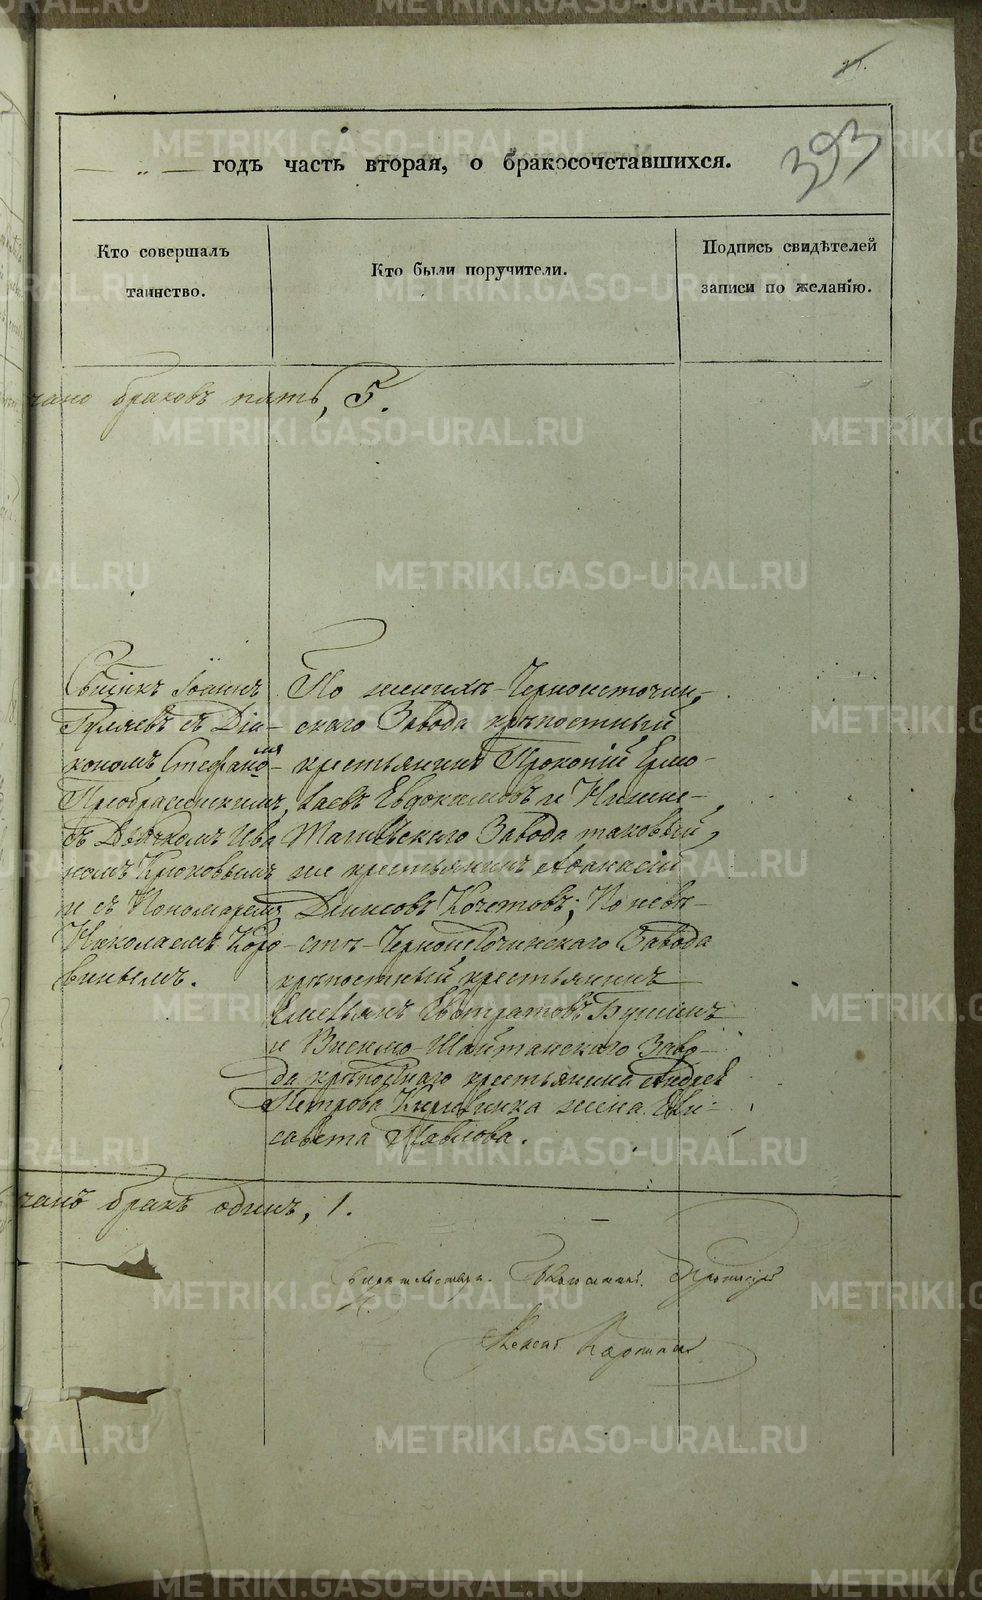 393
годъ часть вторая, о бракосочетавшихся.
Кто совершалъ
таинство.
Кто были поручители.
Подпись свидѣтелей
записи по желанію.
чано браковъ пять, 5.
Священикъ Іоаннъ
Гуляевъ съ Діа-
кономъ Стефаномъ
Преображенскимъ,
съ Дьячкомъ Ива
номъ Крюковымъ
и съ Пономаремъ
Николаемъ Коро-
винымъ.
По женихѣ Черноисточин-
скаго Завода крѣпостный
крестьянинъ Прокопій Ермо-
лаевъ Евдокимовъ и Нижне-
Тагильскаго Завода таковый
же крестьянинъ Аѳанасій
Денисовъ Кочетовъ; По невѣ-
стѣ Черноисточинскаго Завода
крѣпостный крестьянинъ
Емельянъ Евстратовъ Бушинъ
и Висимо-Шайтанскаго Заво-
да крѣпостнаго крестьянина Андрея
Петрова жена Ели-
савета Павлова.
чанъ бракъ одинъ, 1.
METRIKI.GASO-URAL.RU